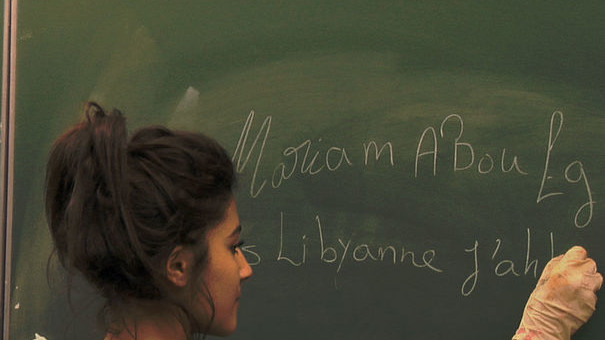 Mariam ABou Lg
s Libyanne j'ah